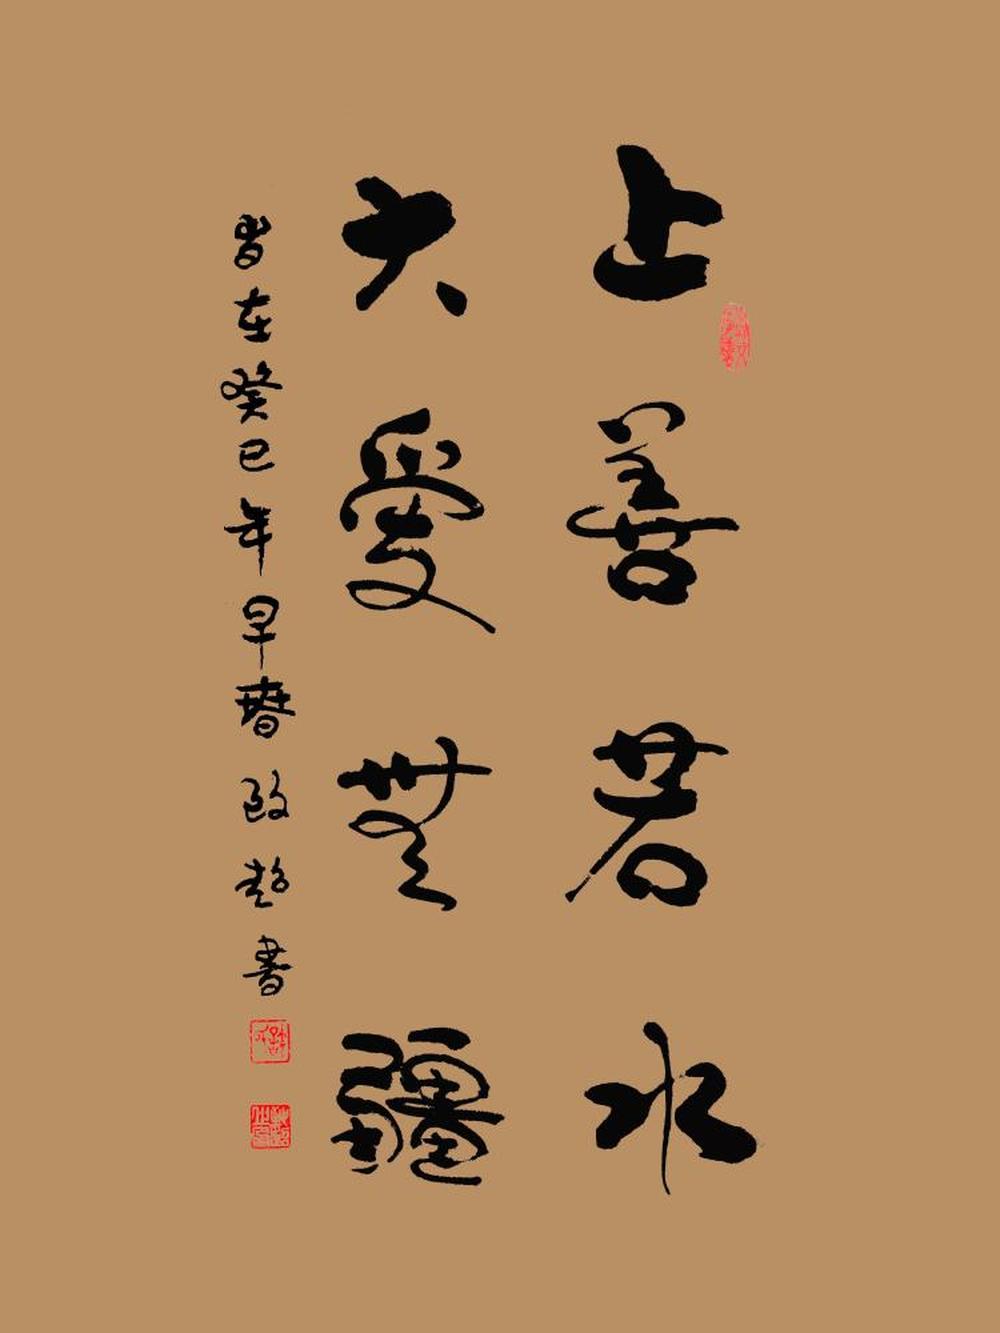 上善若水
大愛無疆
時在癸巳年早春啟超書